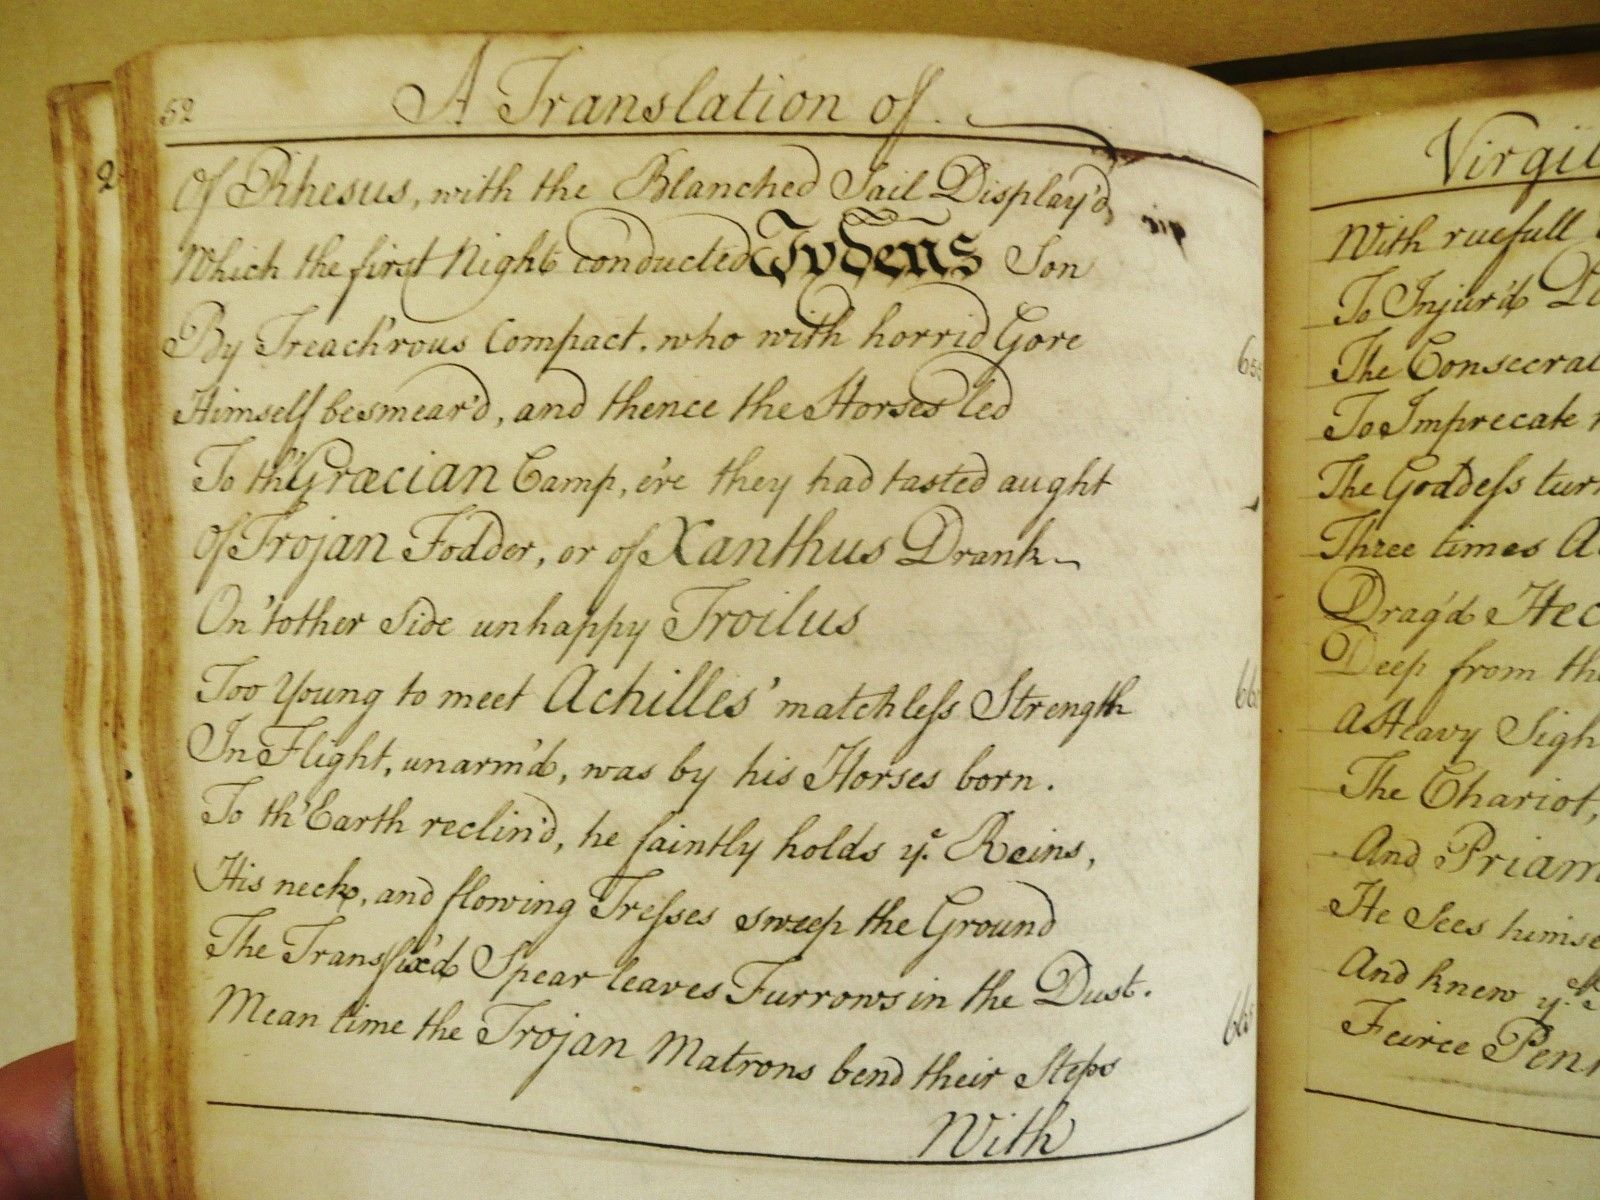 52
A Translation of
Of Rhesus, with the Blanched Sail Display'd,
Which the first Night conducted Tydeus Son
By Treach'rous Compact. who with horrid Gore
655
Himself besmear'd, and thence the Horses led
To th' Græcian Camp, e're they had tasted aught
Of Trojan Fodder, or of Xanthus Drank
On 'tother Side unhappy Troilus
Too Young to meet Achilles' matchless Strength
660
In Flight, unarm'd, was by his Horses born.
To th' Earth reclin'd, he faintly holds ye. Reins,
His neck, and flowing Tresses sweep the Ground
The Transfix'd Spear leaves Furrows in the Dust.
Mean time the Trojan Matrons bend their Steps
665
With
Virgil
With ruefull
To Injur'd
The Consecrat
To Imprecate
The Goddess turn
Three times
Drag'd Hec
Deep from the
A Heavy Sigh
The Chariot,
And Priam
He Sees himse
And knew ye.
Feirce Pen
2